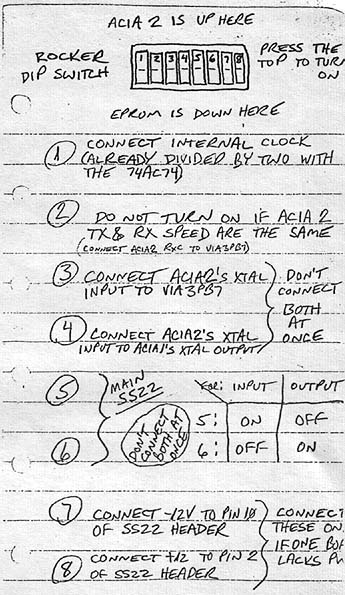 ACIA 2 IS UP HERE
ROCKER DIP SWITCH
1 2 3 4 5 6 7 8
PRESS THE
TOP TO TURN
ON
EPROM IS DOWN HERE
1 CONNECT INTERNAL CLOCK
(ALREADY DIVIDED BY TWO WITH
THE 74AC74)
2 DO NOT TURN ON IF ACIA 2
TX & RX SPEED ARE THE SAME
(CONNECT ACIA2 RXC TO VIA3PB7)
3 CONNECT ACIA2'S XTAL
INPUT TO VIA3PB7
4 CONNECT ACIA2'S XTAL
INPUT TO ACIA1'S XTAL OUTPUT
DON'T
CONNECT
BOTH
AT
ONCE
5
6
MAIN
SS22
DON'T
CONNECT
BOTH AT
ONCE
FOR: INPUT OUTPUT
5: ON OFF
6: OFF ON
7 CONNECT -12V TO PIN 10
OF SS22 HEADER
8 CONNECT +12 TO PIN 2
OF SS22 HEADER
CONNECT
THESE ON
IF ONE
LACKS